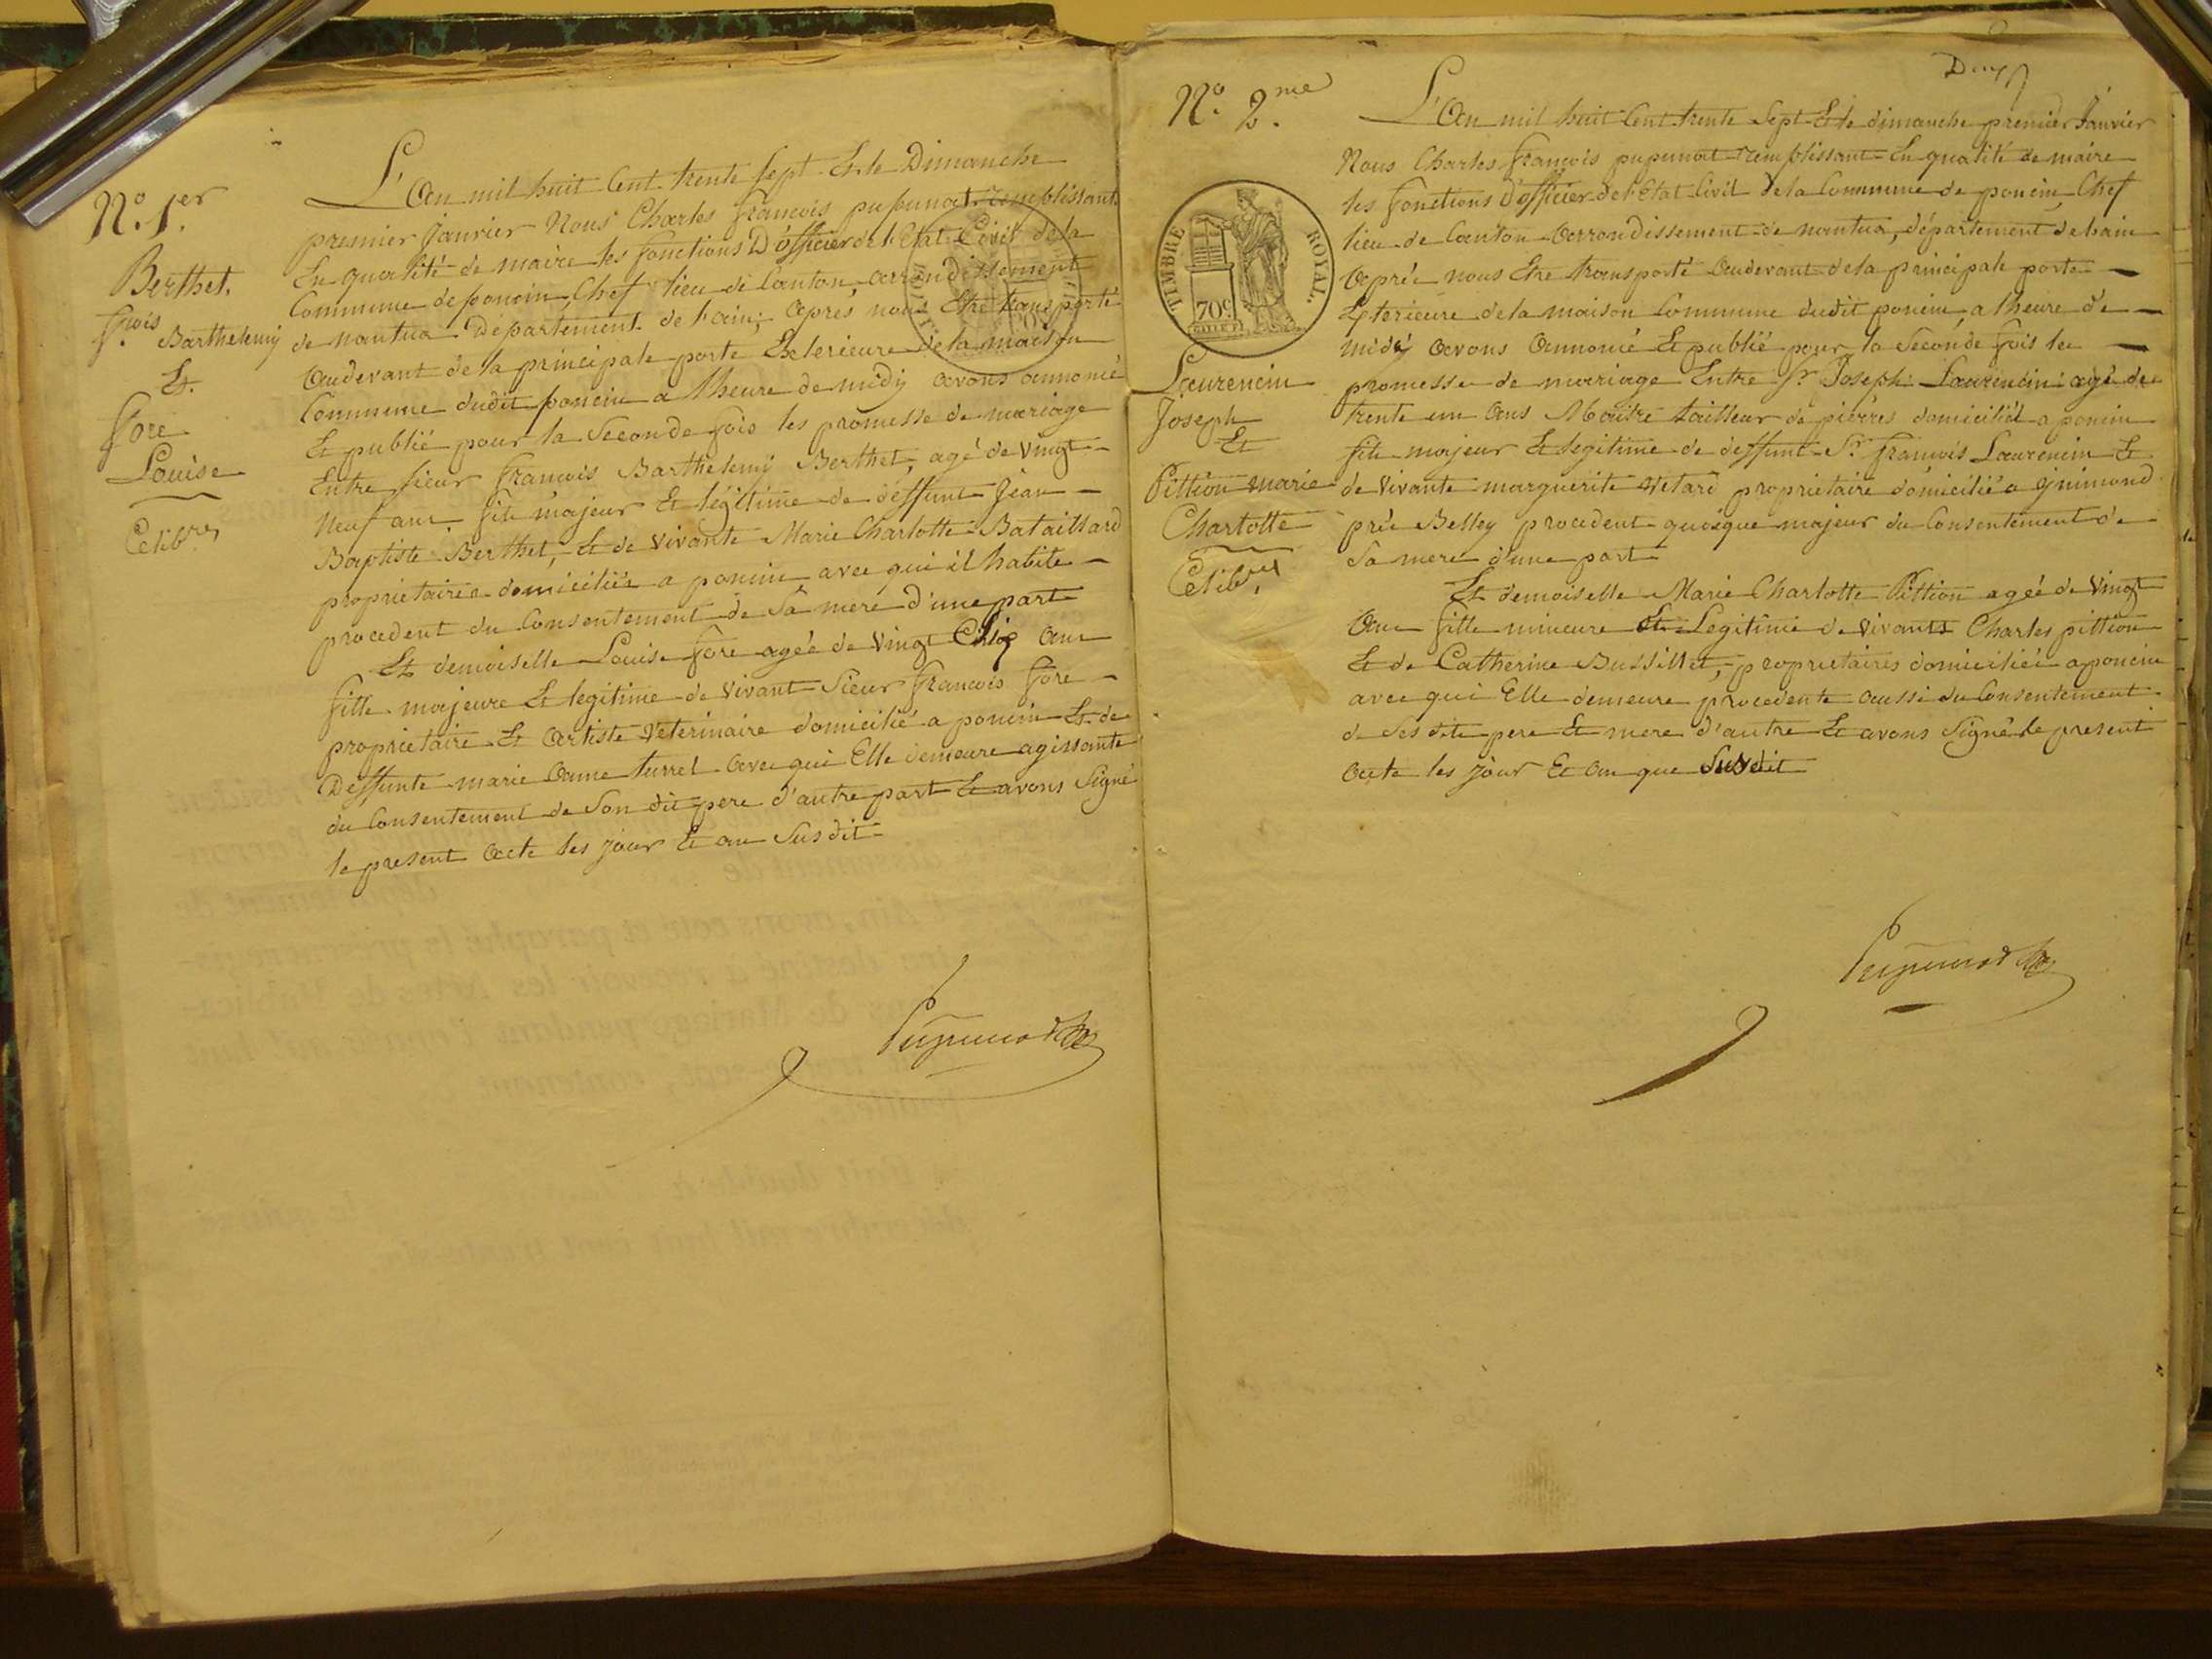 N.o 1.er
Berthet.
f.çois Barthelemy
Et.
fore
Louise
Celib.res
L'an mil huit Cent trente sept Et le Dimanche
premier Janvier Nous Charles francois pupunat remplissant
En qualité de maire les fonctions D'officier de l'Etat Civil de la
Commune de poncin, Chef lieu de Canton, arrondissement
de nantua Département de l'ain; après nous Etre transporté
audevant de la principale porte Exterieure de la maison
Commune dudit poncin a l'heure de midy avons annoncé
Et publié pour la Seconde fois les promesse de mariage
Entre sieur francois Barthelemy Berthet, agé de vingt
Neuf ans fils majeur Et légitime de deffunt Jean
Baptiste Berthet, Et de vivante Marie Charlotte Bataillard
proprietaires domiciliés a poncin avec qui il habite
procedent du Consentement de Sa mere d'une part
Et demoiselle Louise fore agée de vingt Cinq ans
fille majeure Et legitime de vivant Sieur francois fore
proprietaire Et artiste Veterinaire domicilié a poncin Et de
Deffunte marie anne turrel avec qui Elle demeure agissante
du Consentement de Son dit pere d'autre part Et avons Signé
le present acte les jour Et an Susdit
Pupunat
N.o 2.me
TIMBRE ROYAL.
70c
Laurencin
Joseph
Et
Pittion marie
Charlotte
Celib.res
L'an mil huit Cent trente Sept Et le dimanche premier Janvier
Nous Charles francois pupunat remplissant En qualité de maire
les fonctions D'officier de l'Etat Civil de la Commune de poncin, Chef
lieu de Canton arrondissement de nantua, département de l'ain
après nous Etre transporté audevant de la principale porte
Exterieure de la maison Commune dudit poncin a l'heure de
midy avons annoncé Et publié pour la Seconde fois les
promesse de mariage Entre S.r Joseph Laurencin agé de
trente un ans Maitre tailleur de pierres domicilié a poncin
fils majeur Et legitime de deffunt S.r francois Laurencin Et
de vivante marguerite Vetard proprietaire domiciliée a ynimond
près Belley procedent quoique majeur du Consentement de
Sa mere d'une part
Et demoiselle Marie Charlotte Pittion agée de vingt
ans fille mineure Et Legitime de vivants Charles pittion
Et de Catherine Bussillet, proprietaires domiciliés a poncin
avec qui Elle demeure procedente aussi du Consentement
de ses dits pere Et mere d'autre Et avons Signé le present
acte les jour Et an que Susdit
Pupunat